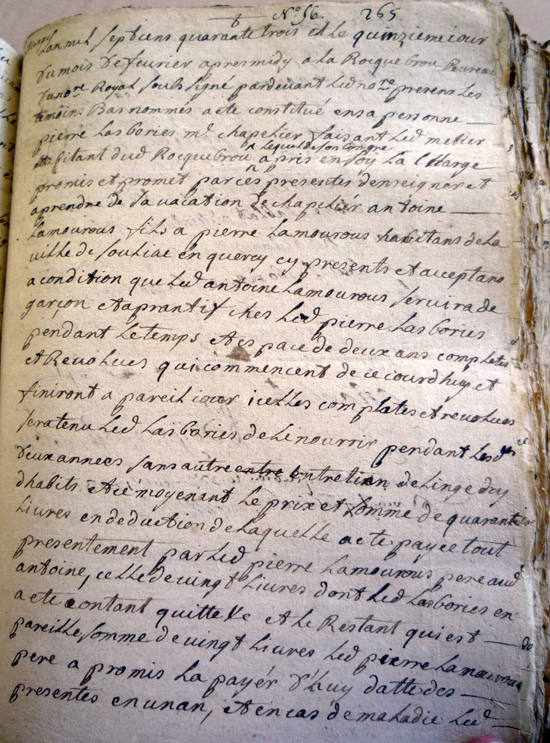 8 N° 56. 265
Lan mil sept cens quarante trois et le quinzieme jour
du mois de fevrier apres midy a la Rocquebrou Bureau
Royal soubs signé pardevant led no.re presens les
temoins Bas nommes a eté constitué en sa personne
pierre Lasbories m.e chapelier faisant led metier
habitant dud Rocquebrou a pris en soy la charge
lequel de son bon gre
promis et promet par ces presentes denseigner et
aprendre de sa vacation de chapelier antoine
Lamourous fils a pierre Lamourous habitans de la
ville de souliac en quercy cy presents et acceptans
a condition que led antoine Lamourous servira de
garçon et aprantif ches led pierre Lasbories
pendant le temps et espace de deux ans complets
et Revolues qui commencent de ce jourdhuy et
finiront a pareil jour icelles complates et revolues
sera tenu led Lasbories de le nourrir pendant lesd
deux annees sans autre entretien de linge ny
dhabits et ce moyenant le prix et somme de quarante
Livres en deduction de laquelle a eté payee tout
presentement par led pierre Lamourous pere aud
antoine, celle de vingt Livres dont led Lasbories en
a eté contant quitte &c et le Restant qui est
pareille somme de vingt Livres led pierre Lamourous
pere a promis la payér d'huy datte des
presentes en un an, et en cas de maladie led